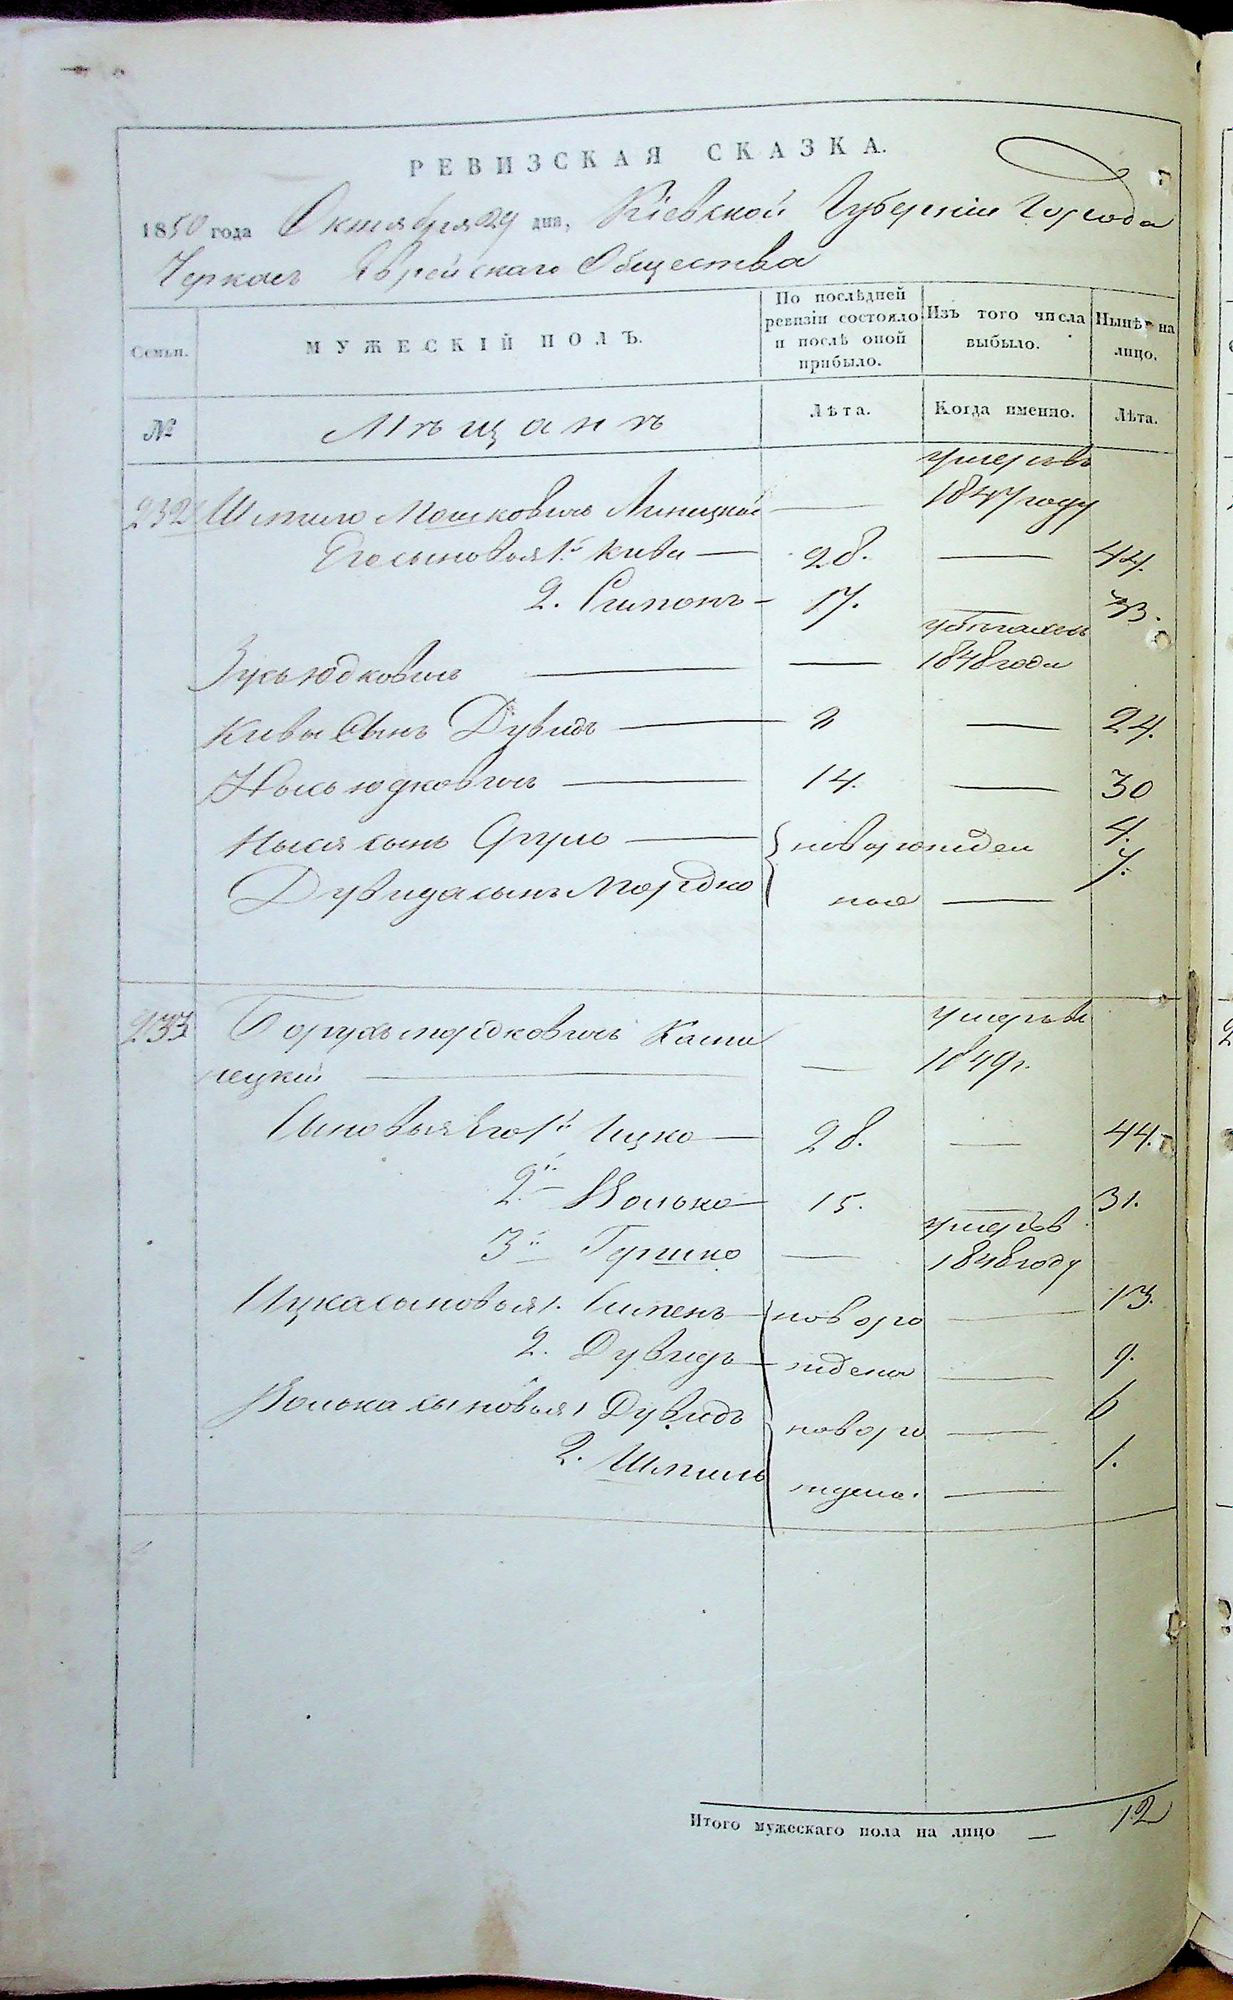 РЕВИЗСКАЯ СКАЗКА.
1850 года Октября 29 дня, Кіевской Губерніи Города
Черкасъ Еврейскаго Общества
Семьи.
МУЖЕСКІЙ ПОЛЪ.
По послѣдней ревизіи состояло и послѣ оной прибыло.
Изъ того числа выбыло.
Нынѣ на лицо.
№ Мѣщанѣ Лѣта. Когда именно. Лѣта.
умеръ въ
232 Шмило Мошковичъ Линицкій — 1847 году
Его сыновья 1й Кива — 28. — 44.
2. Симонъ — 17. 33.
Зусь Юдковичъ — — 1848 года
Кивы Сынъ Дувидъ — 8 — 24.
Нысь Юдковичъ — 14. — 30
Ныся сынъ Сруль — новорожден 4.
Дувида сынъ Мордко ные — 7.
233 Борухъ Мордковичъ Камине умеръ въ
нецкій — — 1849 г.
Сыновья Его 1й Ицко — 28. — 44.
2й Волько — 15. — 31.
умеръ въ
3й Гершко — 1848 году
Ицка сыновья 1. — новоро — 13.
2. Дувидъ — ждены — 9.
Волька сыновья 1 Дувидъ новоро — 6
2. Шмиль ждены. — 1.
Итого мужескаго пола на лицо — 12